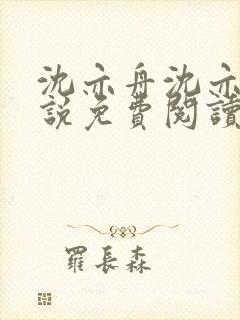 沈亦舟沈亦
說免費閱讀
羅長森